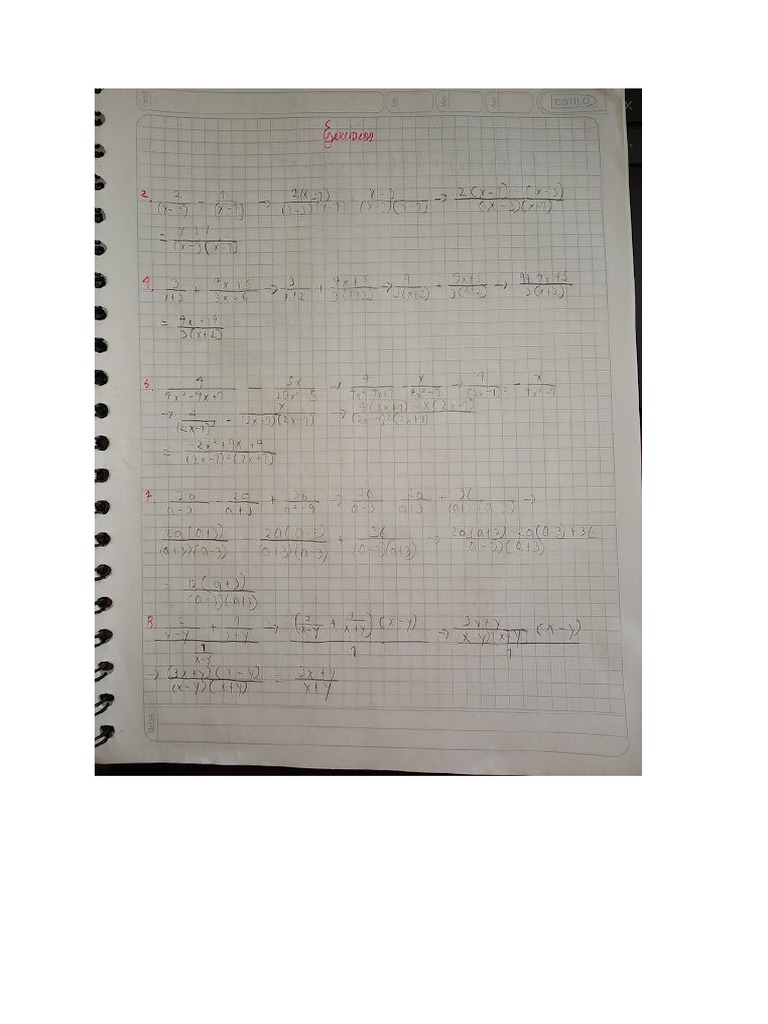 ESTILO
Ejercicios
2. 2/(x-3) - 1/(x-1) → 2(x-1)/(x-3)(x-1) - x-3/(x-3)(x-1) → 2(x-1)-(x-3)/(x-3)(x-1)
= x+1/(x-3)(x-1)
4. 3/x+2 + 4x+5/3x+6 → 3/x+2 + 4x+5/3(x+2) → 9/3(x+2) + 4x+5/3(x+2) → 9+4x+5/3(x+2)
= 4x+14/3(x+2)
- 5x/
→ 4/(2x-1)² - x/(2x+1)(2x-1) → 4(2x+1)-x(2x-1)/(2x-1)²(2x+1)
= -2x²+9x+4/(2x-1)²(2x+1)
2a/a-3 - 2a/a+3 + 36/a²-9 → 2a/a-3 - 2a/a+3 + 36/(a+3)(a-3) →
2a(a+3)/(a+3)(a-3) - 2a(a-3)/(a+3)(a-3) + 36/(a-3)(a+3) → 2a(a+3)-2a(a-3)+36/(a-3)(a+3)
= 12(a+3)/(a-3)(a+3)
8. 2/x-y + 1/x+y → (2/x-y + 1/x+y)(x-y) → 3x+y/(x-y)(x+y) (x-y)
1/x-y 1 1
→ (3x+y)(x-y)/(x-y)(x+y) = 3x+y/x+y